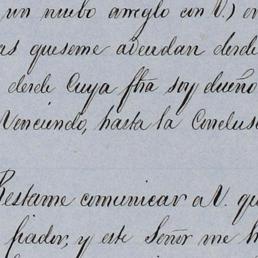 un nuebo arreglo con V.) en
as que se me adeudan desde
desde Cuya fha soy dueño
Venciendo, hasta la Conclus
Restame comunicar a V. qu
fiador, y este Señor me h